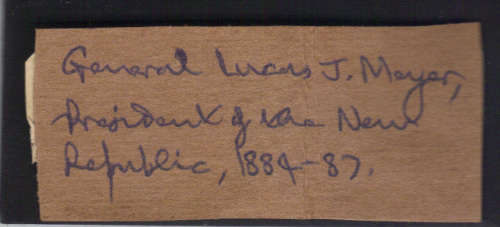 General Lucas J. Meyer,
President of the New
Republic, 1884-87.